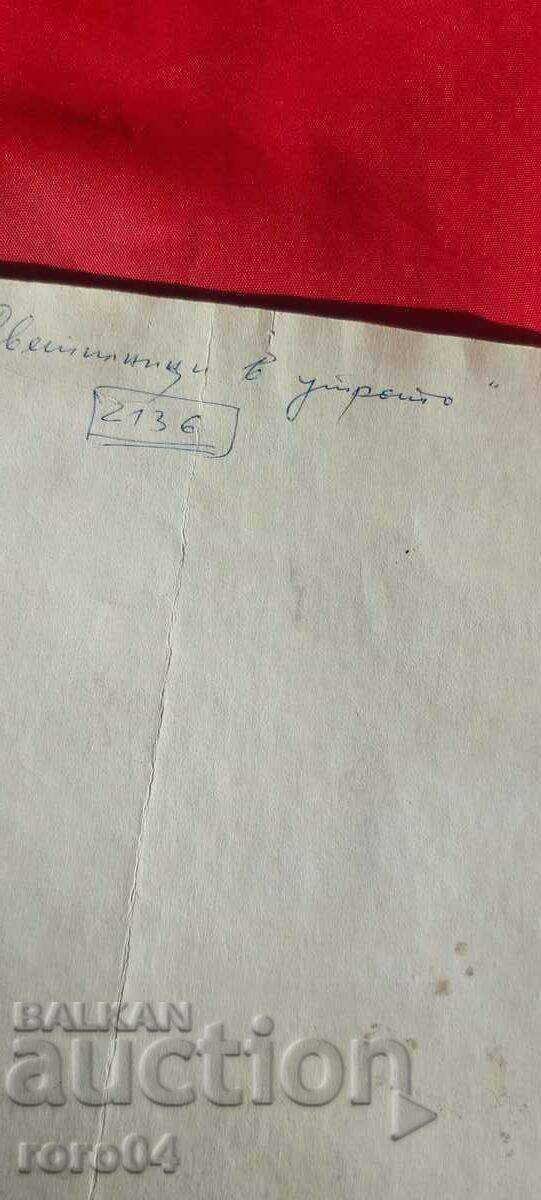 Светлинци в утрото"
2136
BALKAN
auction
roro04